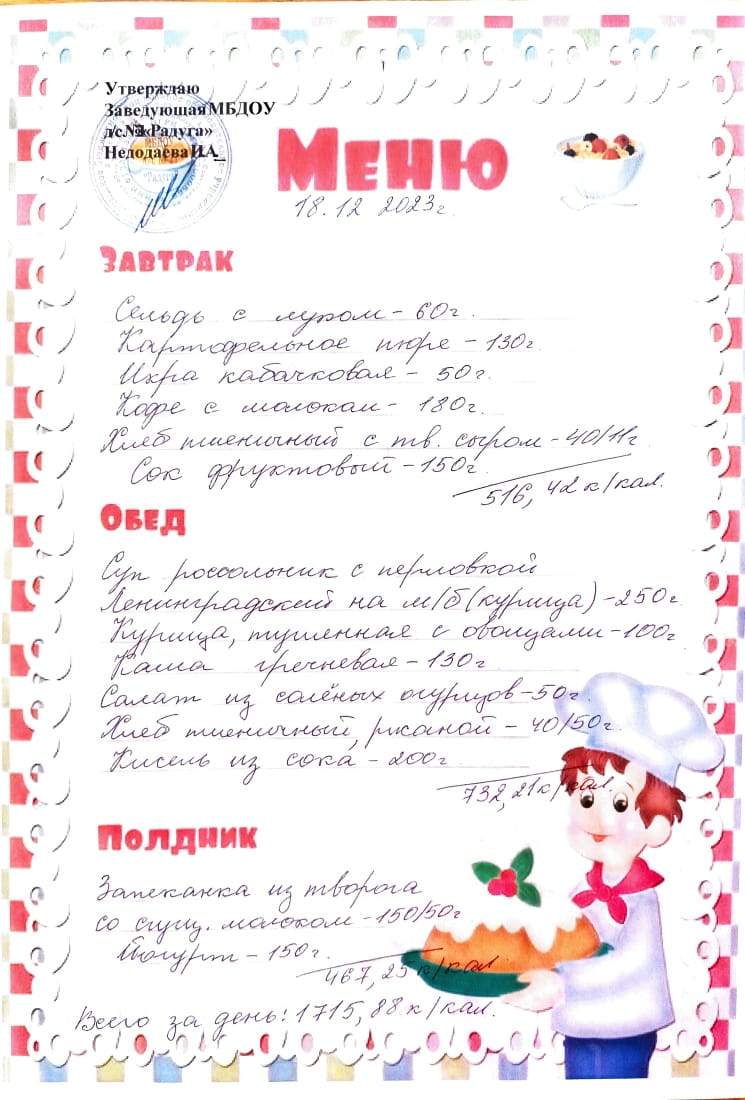 Утверждаю
Заведующая МБДОУ
д/с№3«Радуга»
Недодаева И.А_
Меню
18.12 2023г.
Завтрак
Сельдь с луком - 60г.
Картофельное пюре - 130г.
Икра кабачковая - 50г.
Кофе с молоком - 180г.
Хлеб пшеничный с тв. сыром - 40/11г.
Сок фруктовый - 150г.
516,42 к/кал.
Обед
Суп россольник с перловкой
Ленинградский на м/б (курица) - 250г.
Курица, тушенная с овощами - 100г
Каша гречневая - 130г
Салат из солёных огурцов - 50г.
Хлеб пшеничный, ржаной - 40/50г.
Кисель из сока - 200г
732,21 к/кал.
Полдник
Запеканка из творога
со сгущ. молоком - 150/50г
Йогурт - 150г.
467,25 к/кал.
Всего за день: 1715,88 к/кал.